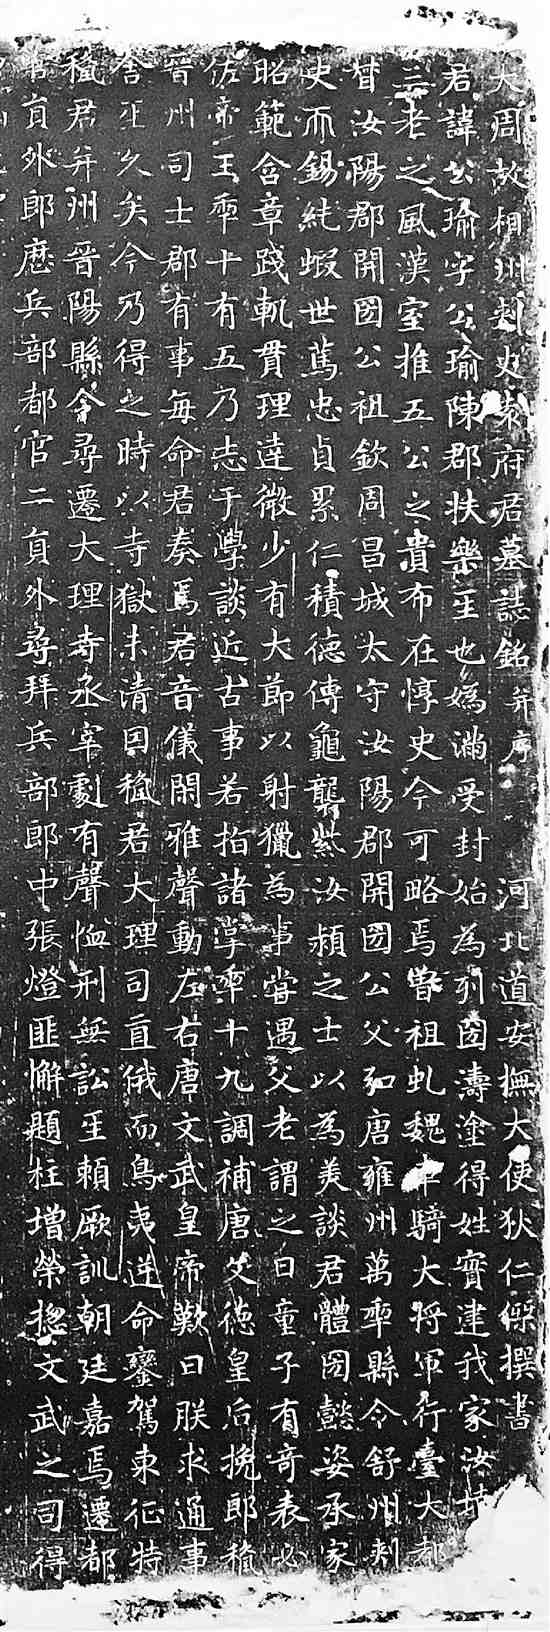 大周故相州刺史袁府君墓誌銘并序 河北道安撫大使狄仁傑撰書
君諱公瑜字公瑜陳郡扶樂𤯔也媯滿受封始為列國濤塗得姓實建我家汝
三老之風漢室推五公之貴布在惇史今可略焉曾祖虬魏車騎大將軍行臺大都
督汝陽郡開圀公祖欽周昌城太守汝陽郡開圀公父弘唐雍州萬𠡦縣令舒州刺
史而錫純嘏世篤忠貞累仁積德傳龜襲紫汝潁之士以為美談君體圀懿姿承家
昭範含章踐軌貫理達微少有大節以射獵為事嘗遇父老謂之曰童子有奇表必
佐帝王𠡦十有五乃志于學談近古事若指諸掌𠡦十九調補唐文德皇后挽郎稍
晉州司士郡有事每命君奏焉君音儀閑雅聲動左右唐文武皇帝歎曰朕求通事
舍𤯔久矣今乃得之時以寺獄未清因授君大理司直俄而島夷逆命鑾駕東征特
授君并州晉陽縣令尋遷大理寺丞宰劇有聲恤刑無訟𤯔賴厥訓朝廷嘉焉遷都
官員外郎歷兵部都官二員外尋拜兵部郎中張燈匪懈題柱增榮揔文武之司得